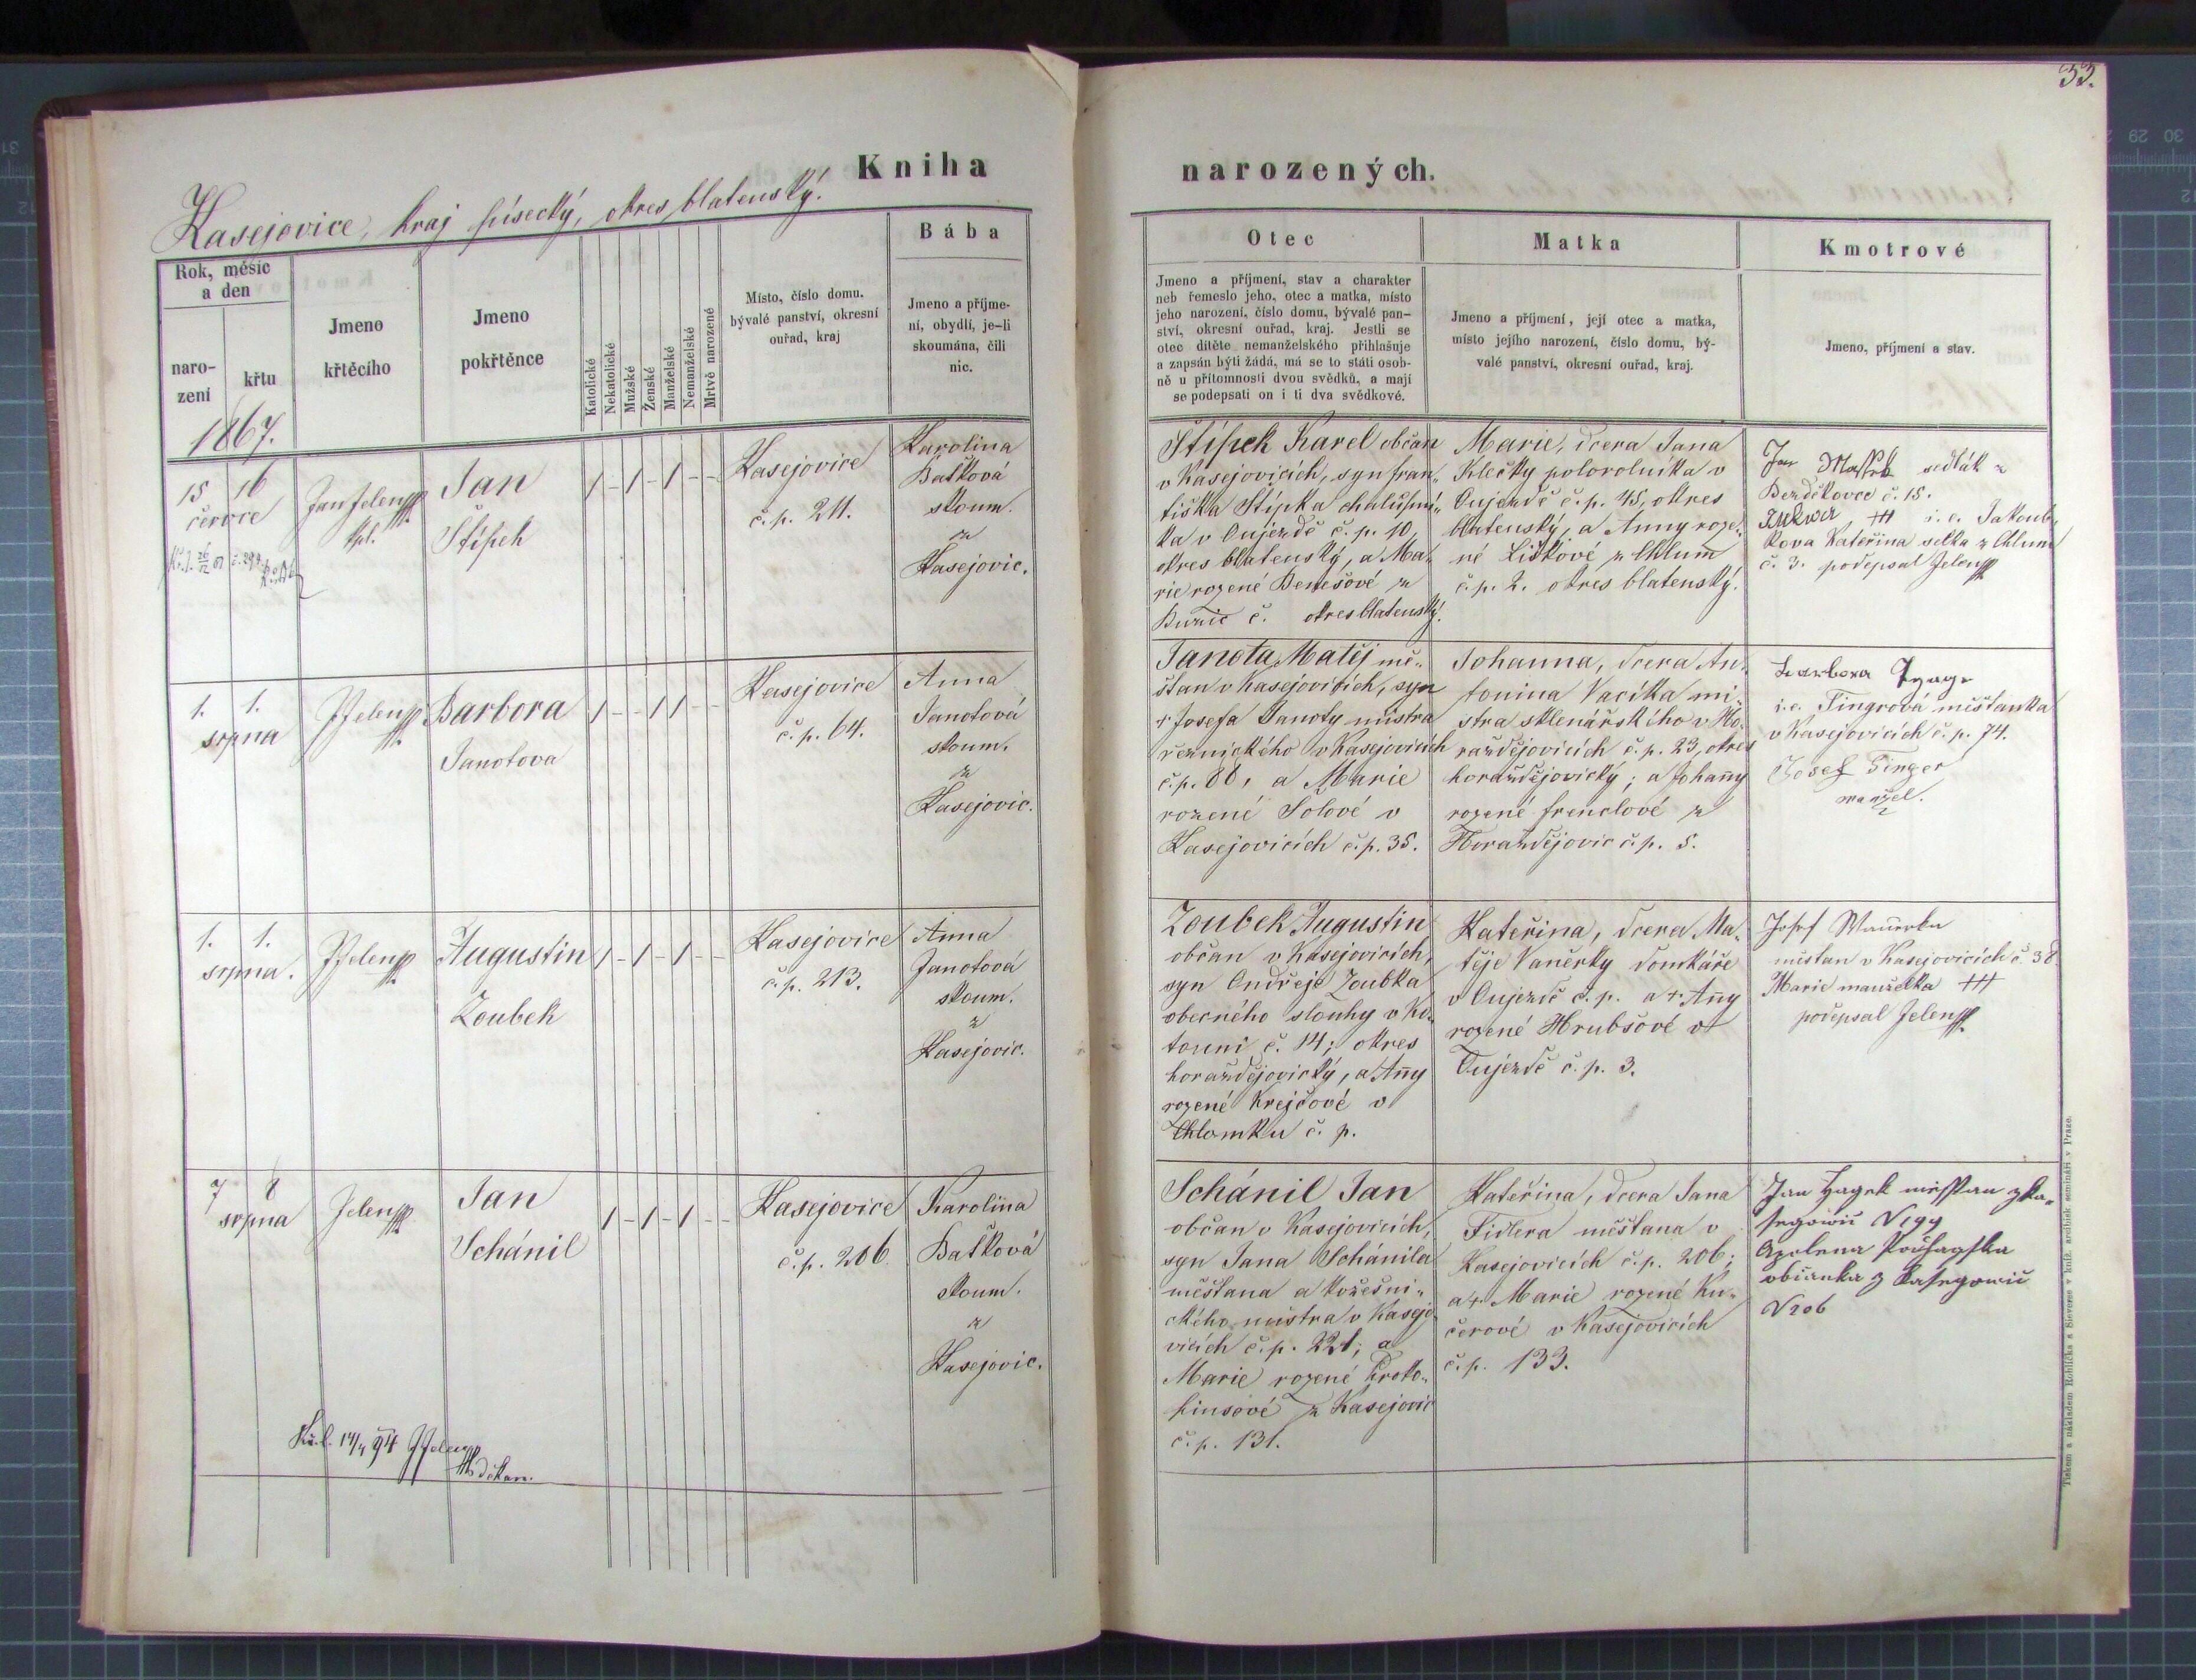 33.
Kniha narozených.
Kasejovice, kraj písecký, okres blatenský.
Rok, měsíc
a den
naro-
zení
křtu
Jmeno
křtěcího
Jmeno
pokřtěnce
Katolické
Nekatolické
Mužské
Ženské
Manželské
Nemanželské
Mrtvě narozené
Místo, číslo domu.
bývalé panství, okresní
ouřad, kraj
Bába
Jmeno a příjme-
ní, obydlí, je-li
skoumána, čili
nic.
Otec
Jmeno a příjmení, stav a charakter
neb řemeslo jeho, otec a matka, místo
jeho narození, číslo domu, bývalé pan-
ství, okresní ouřad, kraj. Jestli se
otec dítěte nemanželského přihlašuje
a zapsán býti žádá, má se to státi osob-
ně u přítomnosti dvou svědků, a mají
se podepsati on i ti dva svědkové.
Matka
Jmeno a příjmení, její otec a matka,
místo jejího narození, číslo domu, bý-
valé panství, okresní ouřad, kraj.
Kmotrové
Jmeno, příjmení a stav.
1867.
15 16
červce
Jan Jelen
kpl.
Jan
Štípek
1 - 1 - 1 - -
Kasejovice
č. p. 211.
Karolina
Baťková
skoum.
z
Kasejovic.
Štípek Karel občan
v Kasejovicích, syn Fran„
tiška Štípka chalupní„
ka v Oujezdě č. p. 10,
okres blatenský, a Ma„
rie rozené Benešové z
Buzic č. okres blatenský.
Marie, dcera Jana
Klečky polorolníka v
Oujezdě č. p. 45, okres
blatenský, a Anny roze„
né Liškové z Chlum
č. p. 2. okres blatenský.
Jan sedlák z
Bezděkovce č. 15.
+++ i. e. Jakoub„
kova Kateřina selka z Chlumu
č. 3. podepsal Jelen
1. 1.
srpna
JJelen
Barbora
Janotova
1 - - 1 1 - -
Kasejovice
č. p. 64.
Anna
Janotová
skoum.
z
Kasejovic.
Janota Matěj mě„
šťan v Kasejovicích, syn
+ Josefa Janoty mistra
řeznického v Kasejovicích
č. p. 88, a Marie
rozené Solové v
Kasejovicích č. p. 35.
Johanna, dcera An„
tonina Vacíka mi„
stra sklenářského v Ho„
raždějovicích č. p. 23, okres
horažďějovický; a Johany
rozené Frenclové z
Horažďějovic č. p. 5.
Barbora
i. e. Fingrová měšťanka
v Kasejovicích č. p. 74.
Josef Finger
manžel.
1. 1.
srpna.
JJelen
Augustin
Zoubek
1 - 1 - 1 - -
Kasejovice
č. p. 213.
Anna
Janotová
skoum.
z
Kasejovic.
Zoubek Augustin
občan v Kasejovicích,
syn Ondřeje Zoubka
obecného slouhy v Ko„
touni č. 14; okres
horažďějovický, a Any
rozené Krejčové v
Chlomku č. p.
Kateřina, dcera Ma„
těje Vaněrky domkáře
v Oujezdě č. p. a + Any
rozené Hrubšové v
Oujezdě č. p. 3.
Josef
městan v Kasejovicích č. 38
Marie manželka +++
podepsal Jelen
7 8
srpna
Jelen
Jan
Schánil
1 - 1 - 1 - -
Kasejovice
č. p. 206.
Karolina
Baťková
skoum.
z
Kasejovic.
Schánil Jan
občan v Kasejovicích,
syn Jana Schánila
měšťana a kožešni„
ckého mistra v Kasejo„
vicích č. p. 221; a
Marie rozené Kroto„
finsové z Kasejovic
č. p. 131.
Kateřina, dcera Jana
Fidlera měšťana v
Kasejovicích č. p. 206;
a + Marie rozené Ku„
čerové v Kasejovicích
č. p. 133.
Jan Hayek
Apolena
z Kasegowic
N 206
děkan.
Tiskem a nákladem Rohlíčka a Sieverse v kníž. arcibisk. semináři v Praze.